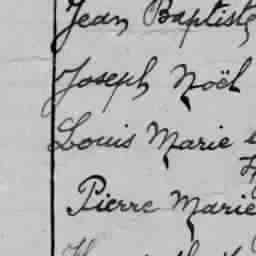 Jean Baptiste
Joseph Noël
Louis Marie
Pierre Marie